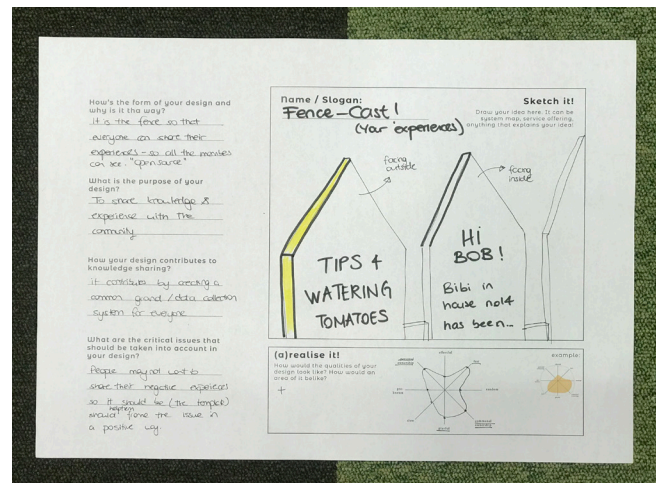 How's the form of your design and
why is it tha way?
It is the fence so that
everyone can share their
experiences - so all the members
can see. "open source"
What is the purpose of your
design?
To share knowledge &
experience with the
community
How your design contributes to
knowledge sharing?
it contributes by creating a
common grand / data collection
system for everyone
What are the critical issues that
should be taken into account in
your design?
People may not want to
share their negative experiences
so it should be (the template)
should frame the issue in
a positive way.
Name / Slogan:
Fence-Cast!
(Your experiences)
Sketch it!
Draw your idea here. It can be
system map, service offering,
anything that explains your idea!
facing
outside
facing
inside
TIPS 4
WATERING
TOMATOES
HI
BOB!
Bibi in
house no14
has been...
(a)realise it!
How would the qualities of your
design look like? How would an
area of it belike?
+
example: